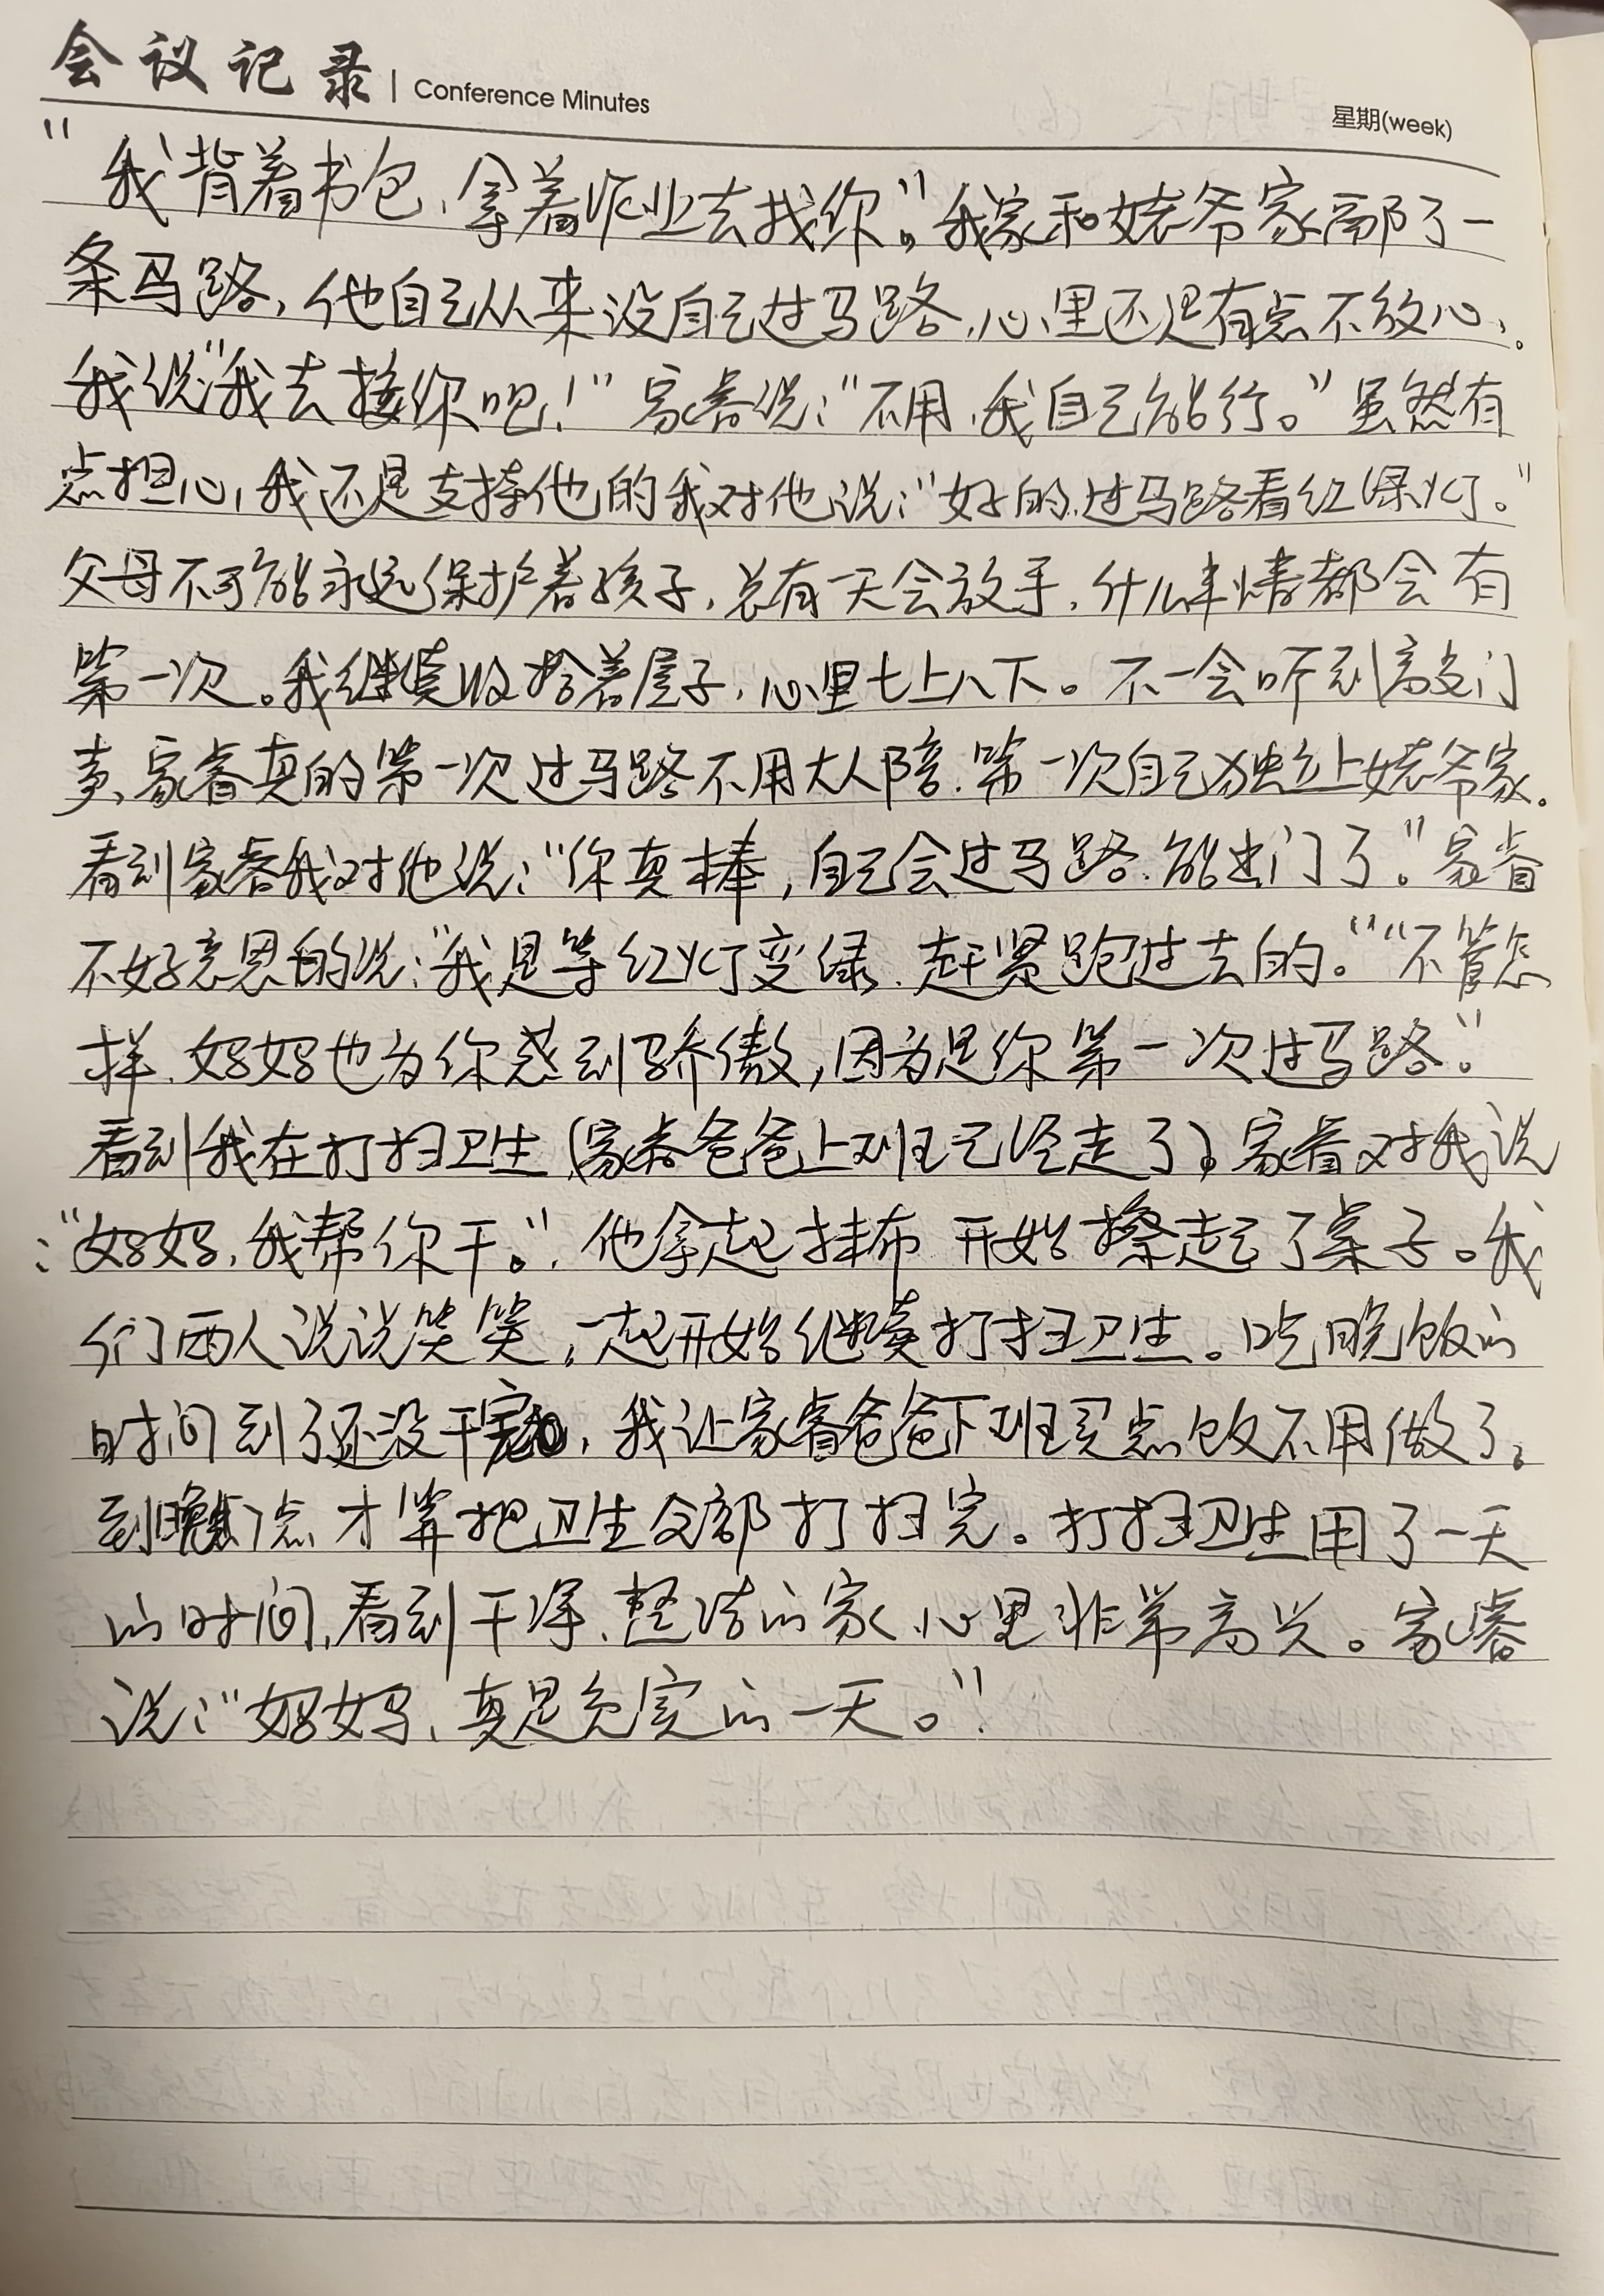 会议记录 | Conference Minutes
星期(week)
"我背着书包、拿着作业去找你。"我家和姥爷家隔了一
条马路,他自己从来没自己过马路,心里还是有点不放心,
我说:"我去接你吧!"家睿说:"不用,我自己能行。"虽然有
点担心,我还是支持他的我对他说:"好的,过马路看红绿灯。"
父母不可能永远保护着孩子,总有一天会放手,什么事情都会有
第一次。我继续收拾着屋子,心里七上八下。不一会听到敲门
声,家睿真的第一次过马路不用大人陪,第一次自己独立上姥爷家。
看到家睿我对他说:"你真棒,自己会过马路,能出门了。"家睿
不好意思的说:"我是等红灯变绿,赶紧跑过去的。""不管怎
样,妈妈也为你感到骄傲,因为是你第一次过马路。"
看到我在打扫卫生(家睿爸爸上班已经走了),家睿对我说
:"妈妈,我帮你干。",他拿起抹布 开始擦起了桌子。我
们两人说说笑笑,一起开始继续打扫卫生。吃晚饭的
时间到了还没干完,我让家睿爸爸下班买点饭不用做了。
到晚点才算把卫生全部打扫完。打扫卫生用了一天
的时间,看到干净、整洁的家,心里非常高兴。家睿
说:"妈妈,真是充实的一天。"